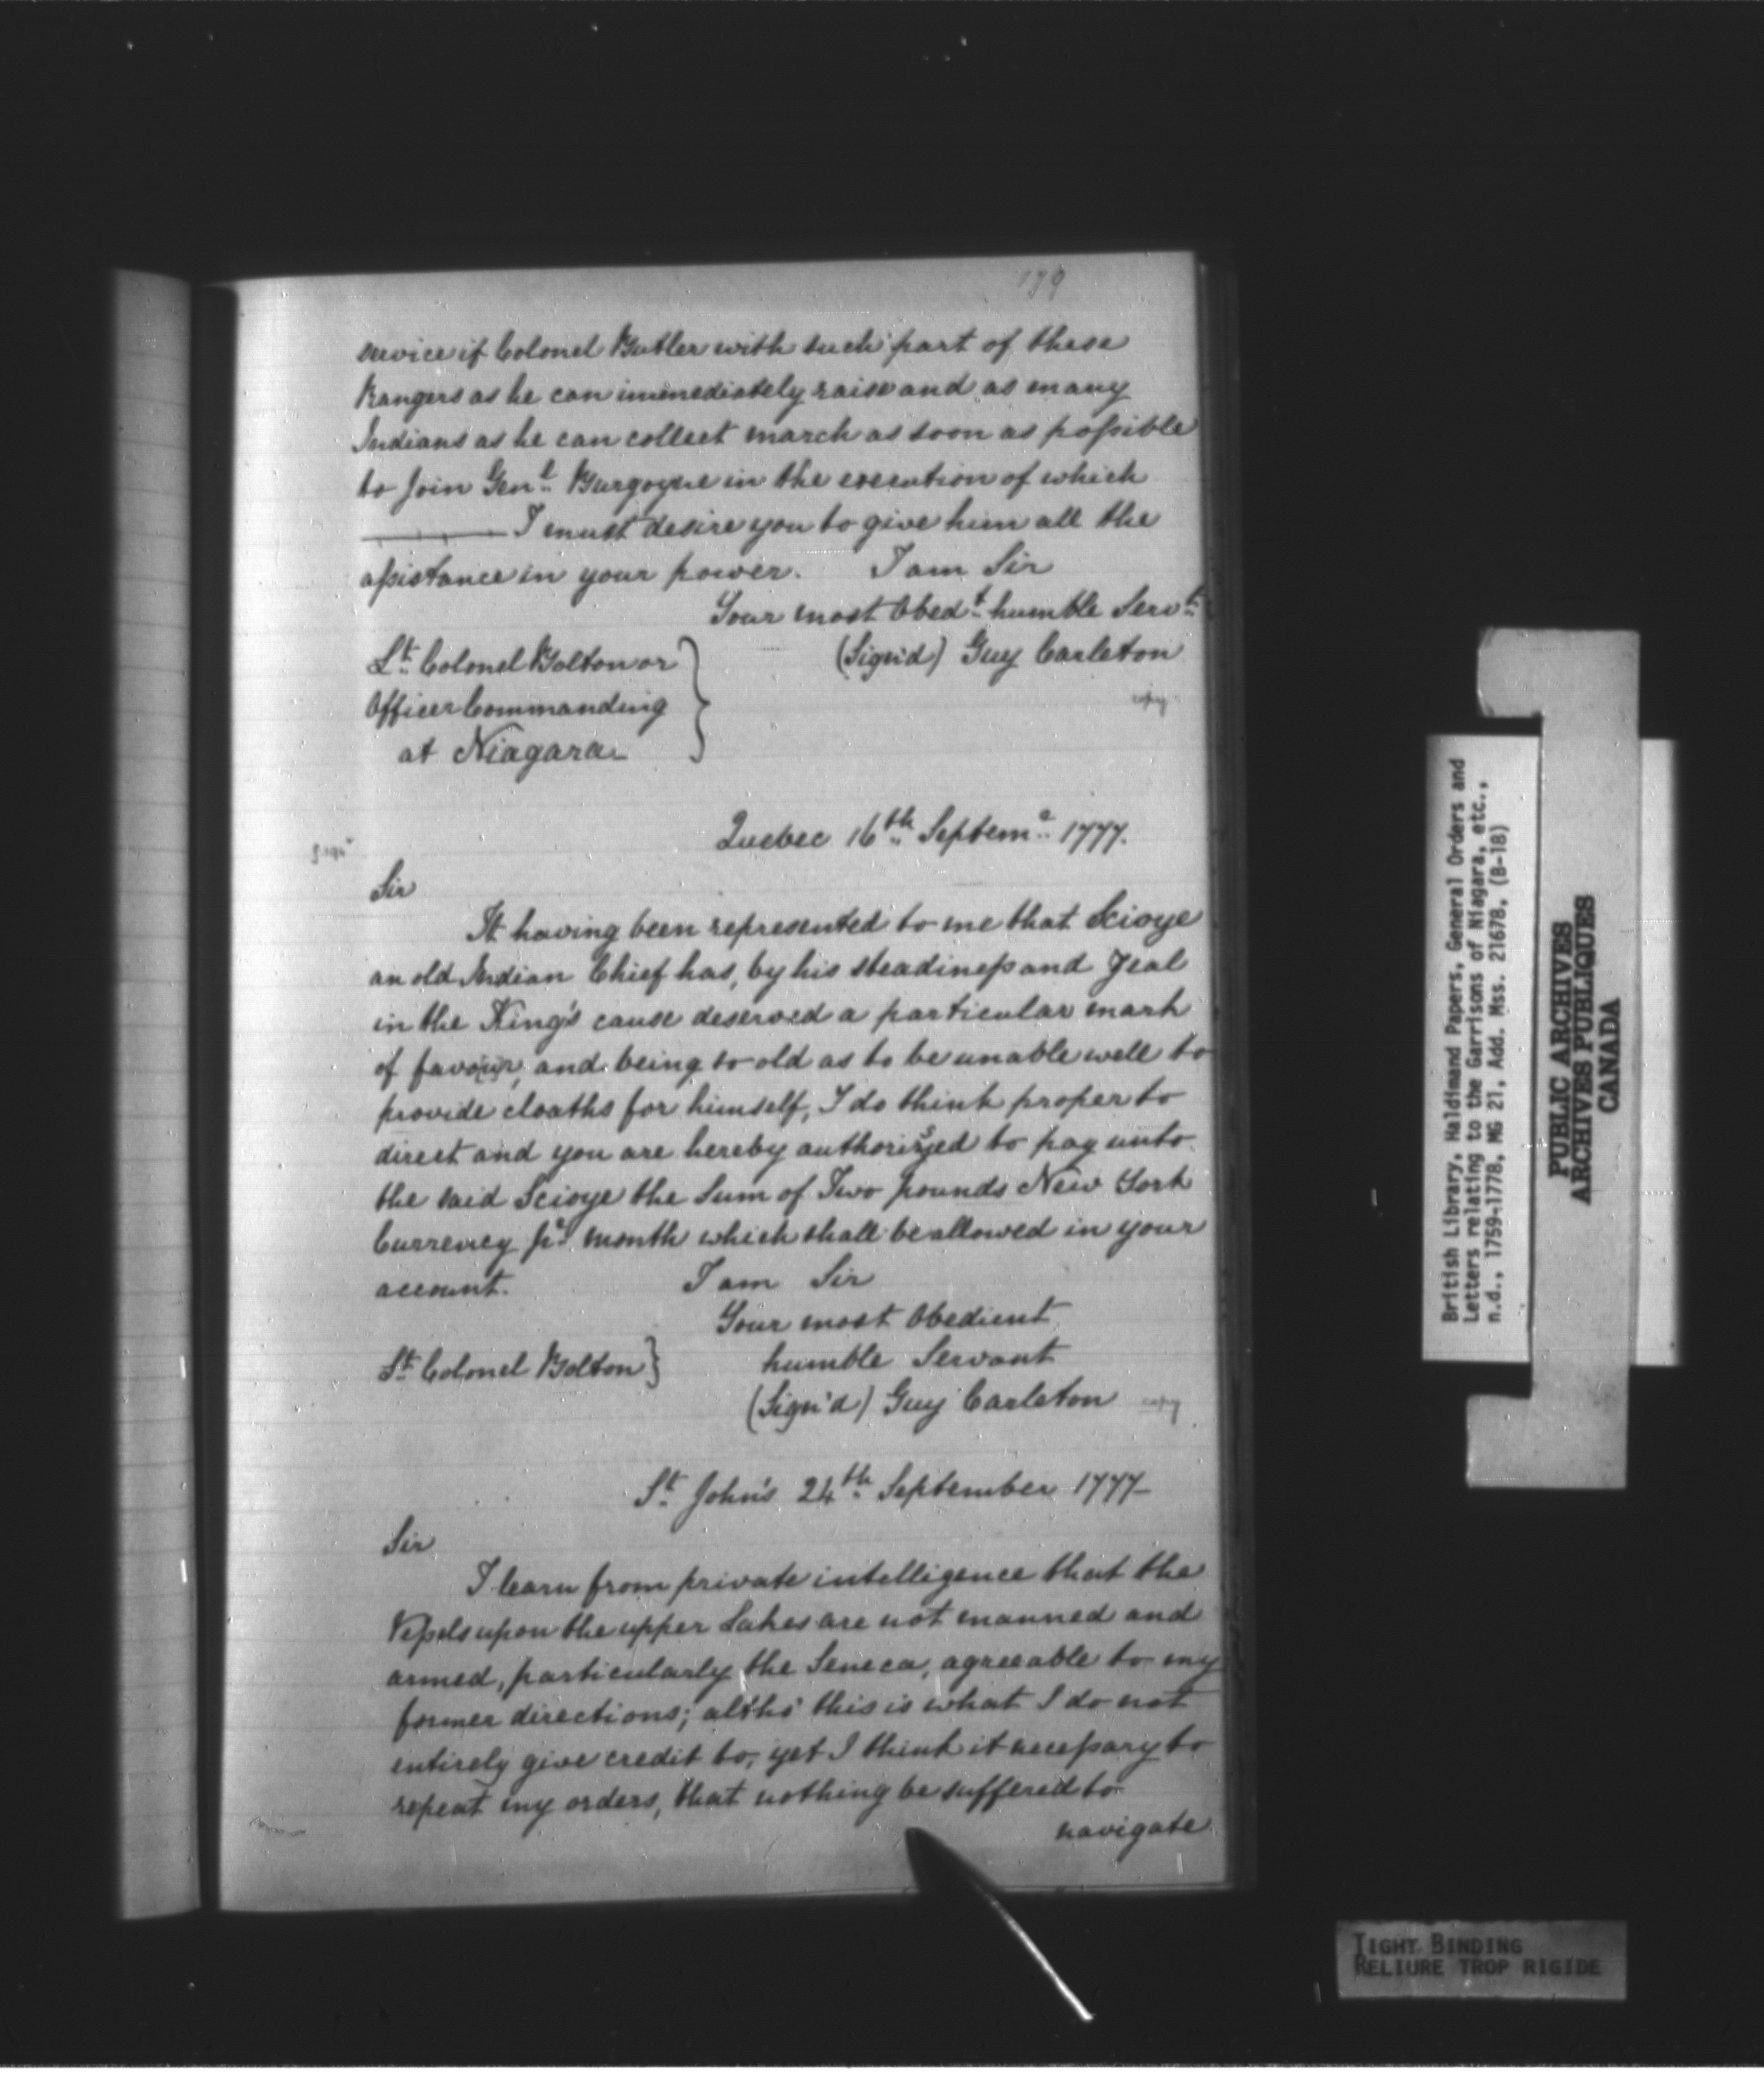 179
service if Colonel Butler with such part of these
Rangers as he can immediately raise and as many
Indians as he can collect march as soon as possible
to join Gen.l Burgoyne in the execution of which
I must desire you to give him all the
assistance in your power. I am Sir
Your most Obed.t humble Serv.t
Lt. Colonel Bolton or
(Sign'd) Guy Carleton
Officer Commanding
copy
at Niagara
Quebec 16th Septem.r 1777.
Sir
It having been represented to me that Scioye
an old Indian Chief has, by his steadiness and Zeal
in the King's cause deserved a particular mark
of favour, and being so old as to be unable well to
provide cloaths for himself, I do think proper to
direct and you are hereby authorized to pay unto
the said Scioye the Sum of Two pounds New York
Currency pr. month which shall be allowed in your
account. I am Sir
Your most Obedient
Lt. Colonel Bolton } humble Servant
(Sign'd) Guy Carleton copy
St. John's 24th September 1777
Sir
I learn from private intelligence that the
Vessels upon the upper Lakes are not manned and
armed, particularly the Seneca, agreeable to my
former directions; altho' this is what I do not
entirely give credit to, yet I think it necessary to
repeat my orders, that nothing be suffered to
navigate
British Library, Haldimand Papers, General Orders and
Letters relating to the Garrisons of Niagara, etc.,
n.d., 1759-1778, MG 21, Add. Mss. 21678, (B-18)
PUBLIC ARCHIVES
ARCHIVES PUBLIQUES
CANADA
TIGHT BINDING
RELIURE TROP RIGIDE